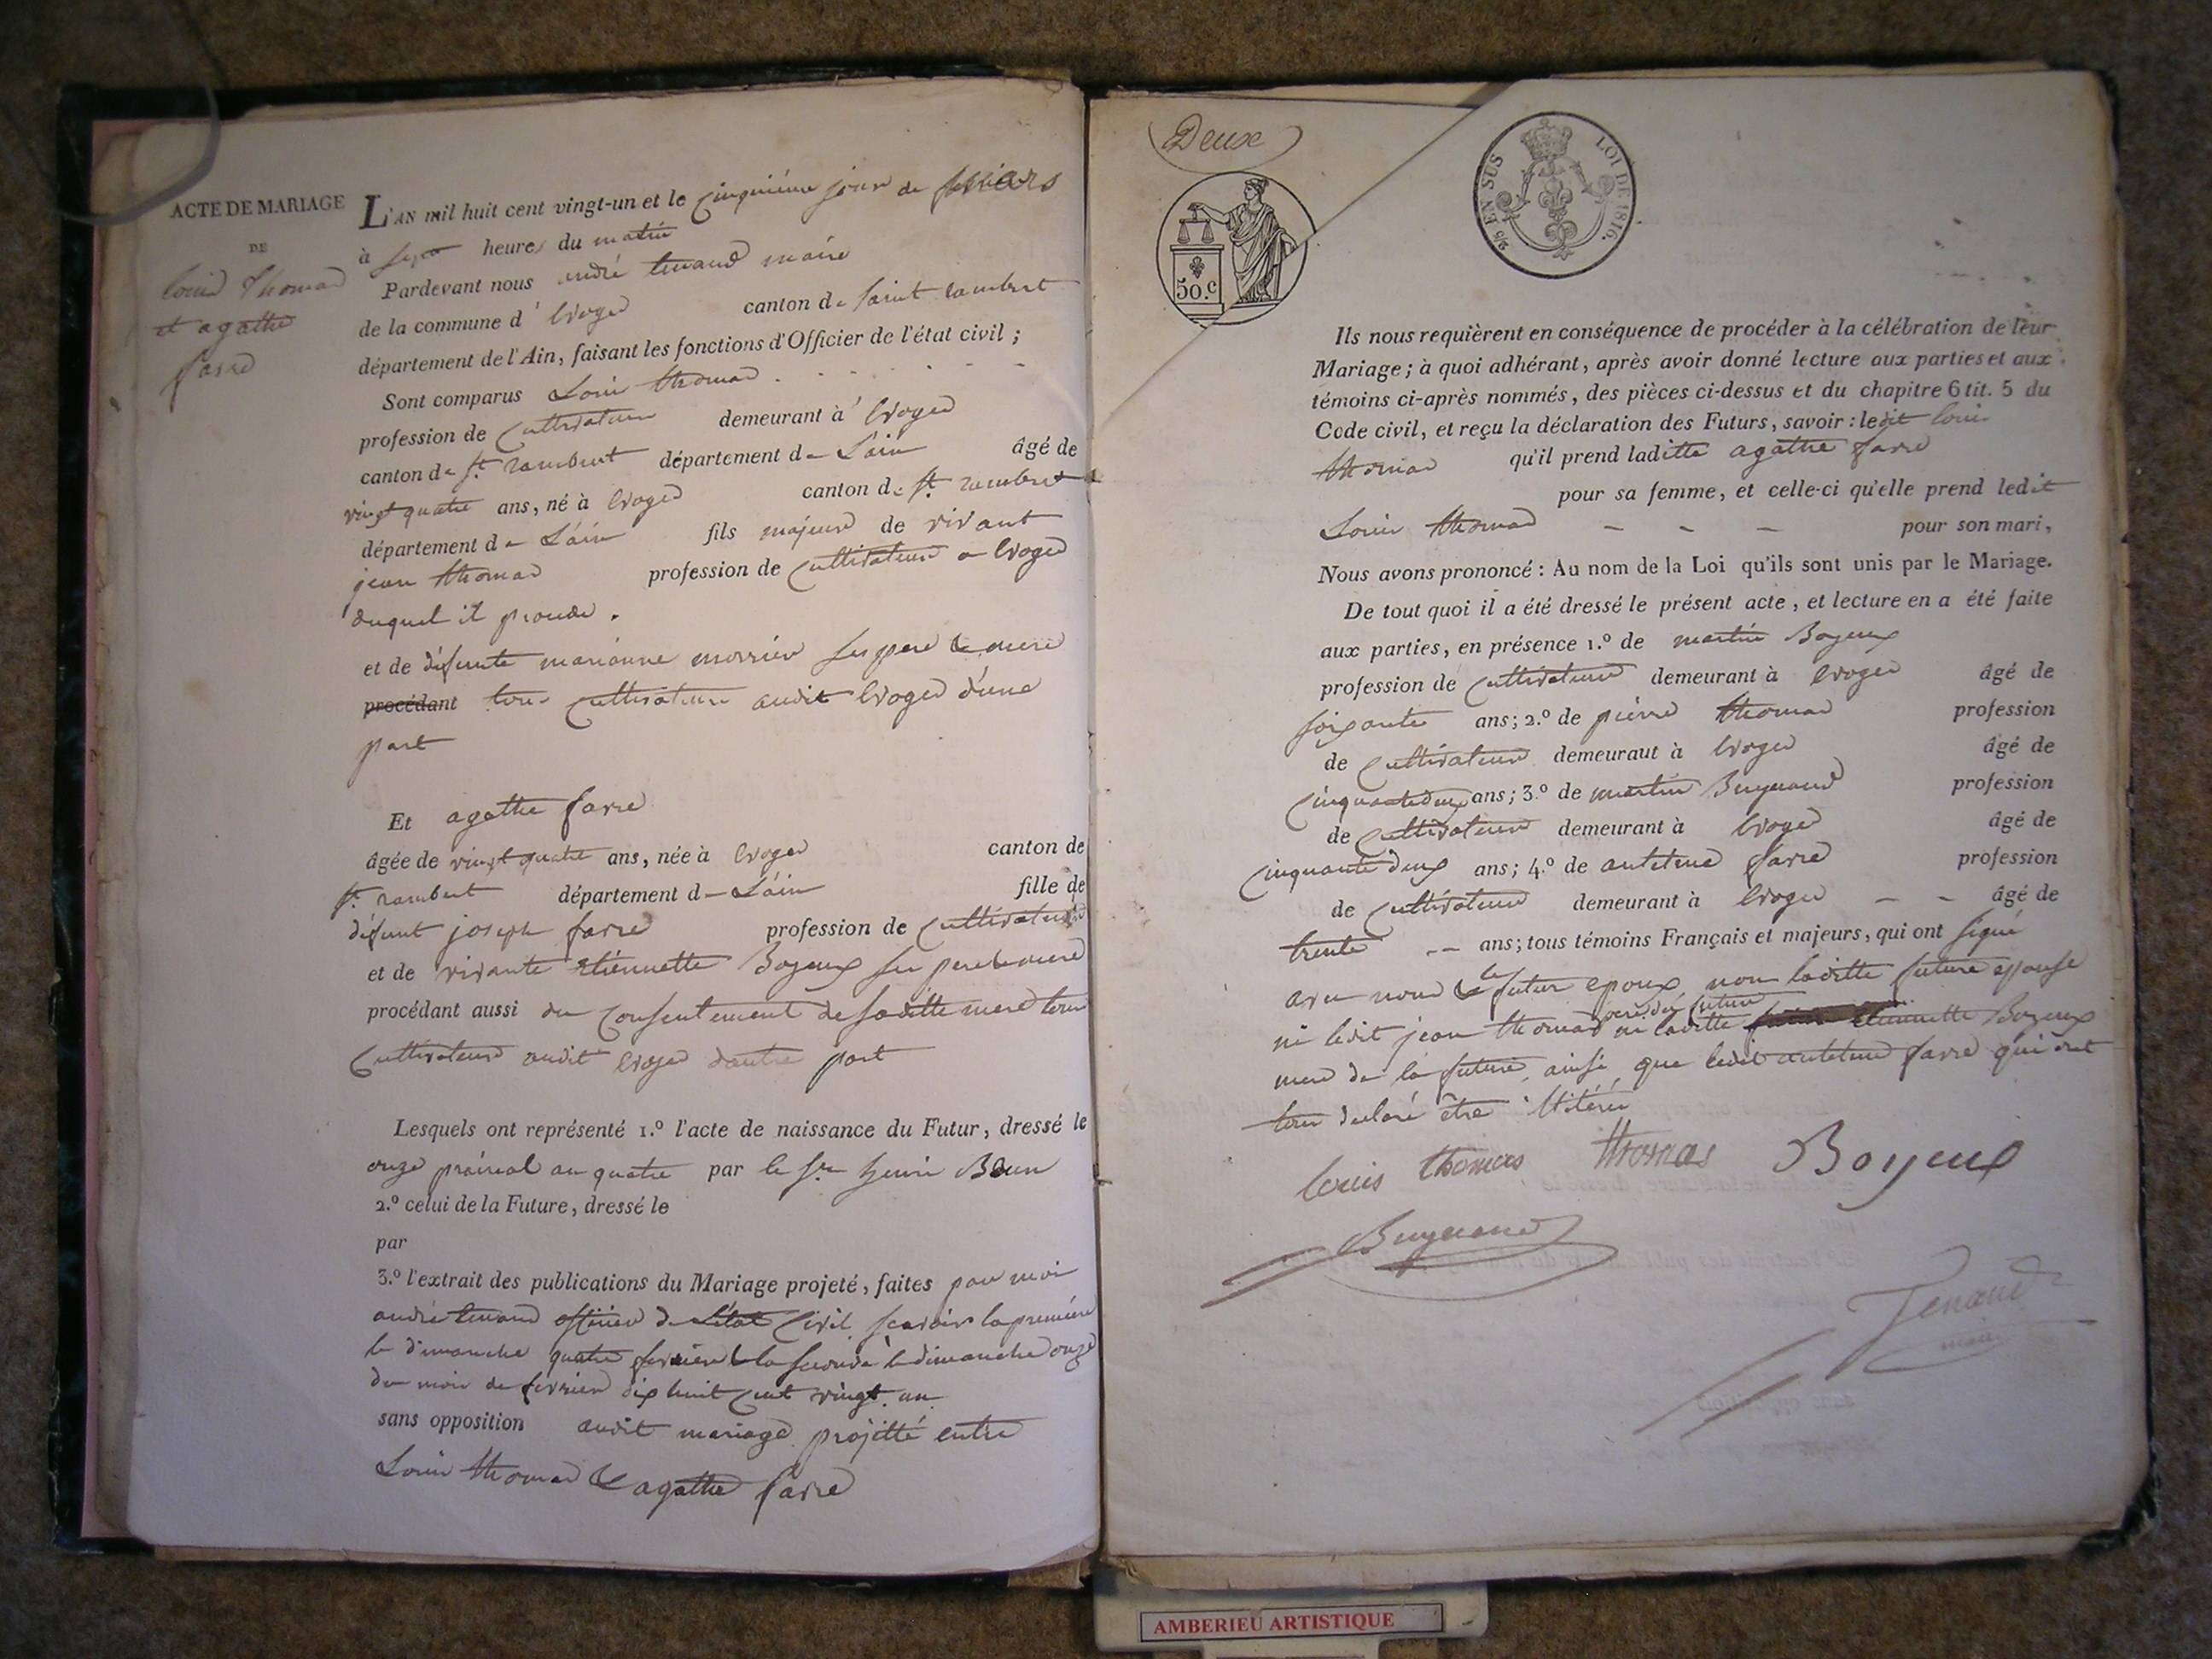 ACTE DE MARIAGE
DE
louis Thomas
et agathe
favre
L'AN mil huit cent vingt-un et le cinquième jour de
à sept heures du matin
Pardevant nous andré tenand maire
de la commune d' Evoges canton de saint rambert
département de l'Ain, faisant les fonctions d'Officier de l'état civil ;
Sont comparus Louis thomas
profession de cultivateur demeurant à Evoges
canton de st. rambert département de L'ain âgé de
vingt quatre ans, né à Evoges canton de st. rambert
département de L'ain fils majeur de vivant
jean thomas profession de cultivateur a Evoges
duquel il procede.
et de défunte marianne ses pere & mere
procédant tous cultivateurs audit Evoges d'une
part
Et agathe favre
âgée de vingt quatre ans, née à Evoges canton de
st. rambert département de L'ain fille de
défunt joseph favre profession de cultivateur
et de vivante etiennette Boyeux ses pere & mere
procédant aussi du consentement de saditte mere tous
cultivateurs audit Evoges dautre part
Lesquels ont représenté 1.º l'acte de naissance du Futur, dressé le
onze prairial an quatre par le sr. henri
2.º celui de la Future, dressé le
par
3.º l'extrait des publications du Mariage projeté, faites par moi
andré tenand officier de L'état Civil scavoir la premiere
le dimanche quatre fevrier & la seconde le dimanche onze
du mois de fevrier dix huit cent vingt un
sans opposition audit mariage projetté entre
Louis thomas & agathe favre
Deux
50.c
2/5 EN SUS LOI DE 1816.
Ils nous requièrent en conséquence de procéder à la célébration de leur
Mariage ; à quoi adhérant, après avoir donné lecture aux parties et aux
témoins ci-après nommés, des pièces ci-dessus et du chapitre 6 tit. 5 du
Code civil, et reçu la déclaration des Futurs, savoir : ledit louis
thomas qu'il prend laditte agathe favre
pour sa femme, et celle-ci qu'elle prend ledit
Louis thomas pour son mari,
Nous avons prononcé : Au nom de la Loi qu'ils sont unis par le Mariage.
De tout quoi il a été dressé le présent acte, et lecture en a été faite
aux parties, en présence 1.º de martin Boyeux
profession de cultivateur demeurant à Evoges âgé de
soixante ans ; 2.º de pierre thomas profession
de cultivateur demeuraut à Evoges âgé de
cinquante deux ans ; 3.º de martin Buynand profession
de cultivateur demeurant à Evoges âgé de
cinquante deux ans ; 4.º de antelme favre profession
de cultivateur demeurant à Evoges âgé de
trente ans ; tous témoins Français et majeurs, qui ont signé
avec nous & le futur epoux, non laditte future epouse
ni ledit jean thomas pere du futur ni laditte etiennette Boyeux
mere de la future, ainsi que ledit antelme favre qui ont
tous declaré être illitérés
louis thomas thomas Boyeux
Buynand
Tenand
maire
AMBERIEU ARTISTIQUE